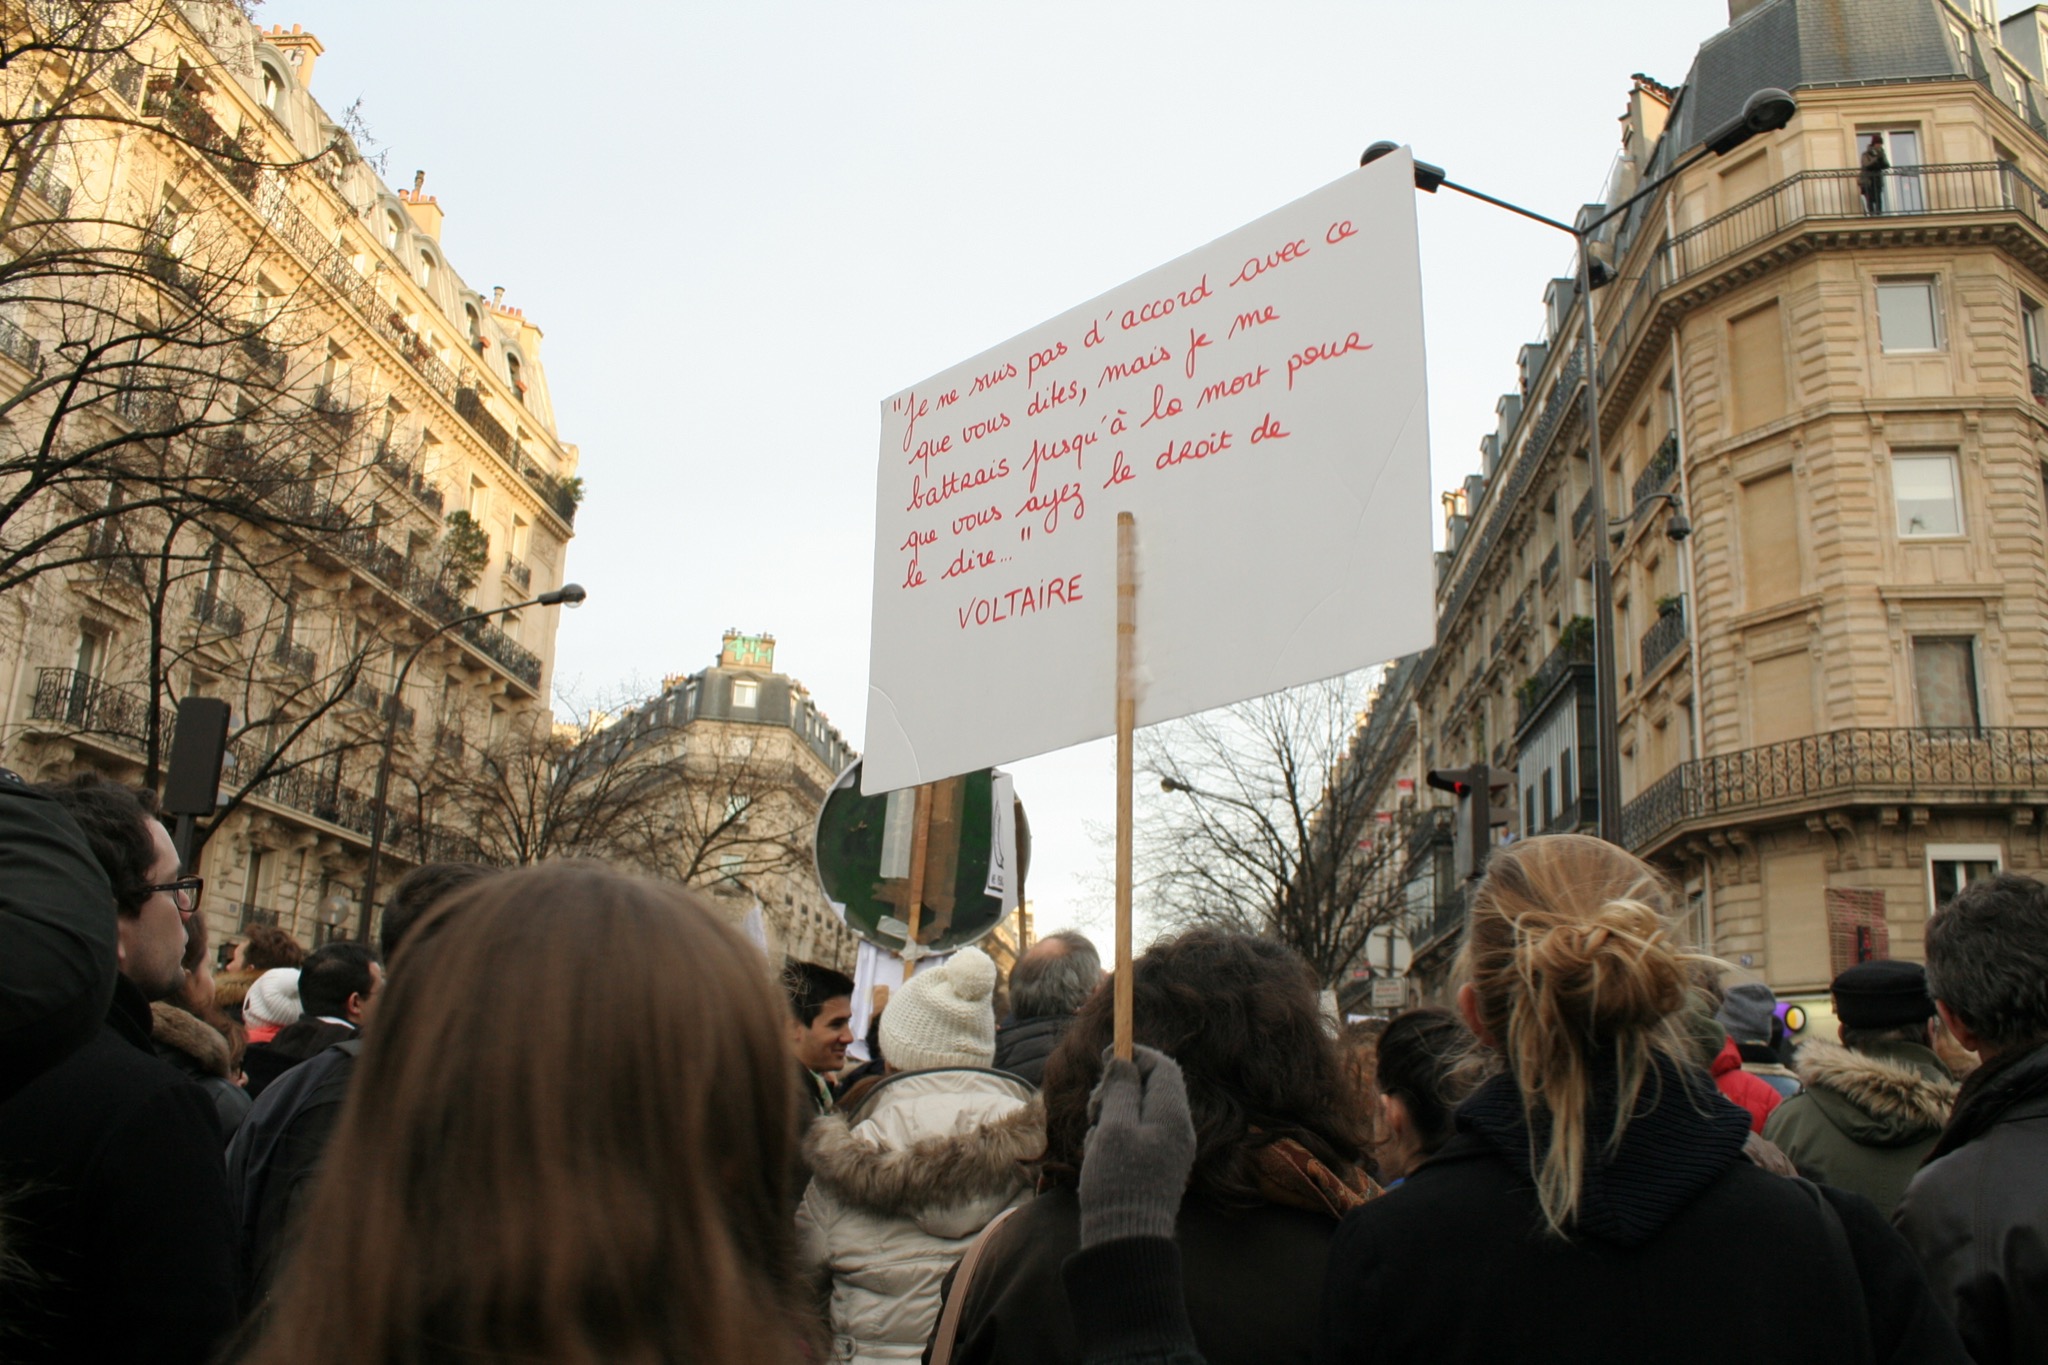 "Je ne suis pas d'accord avec ce
que vous dites, mais je me
battrais jusqu'à la mort pour
que vous ayez le droit de
le dire..."
VOLTAIRE